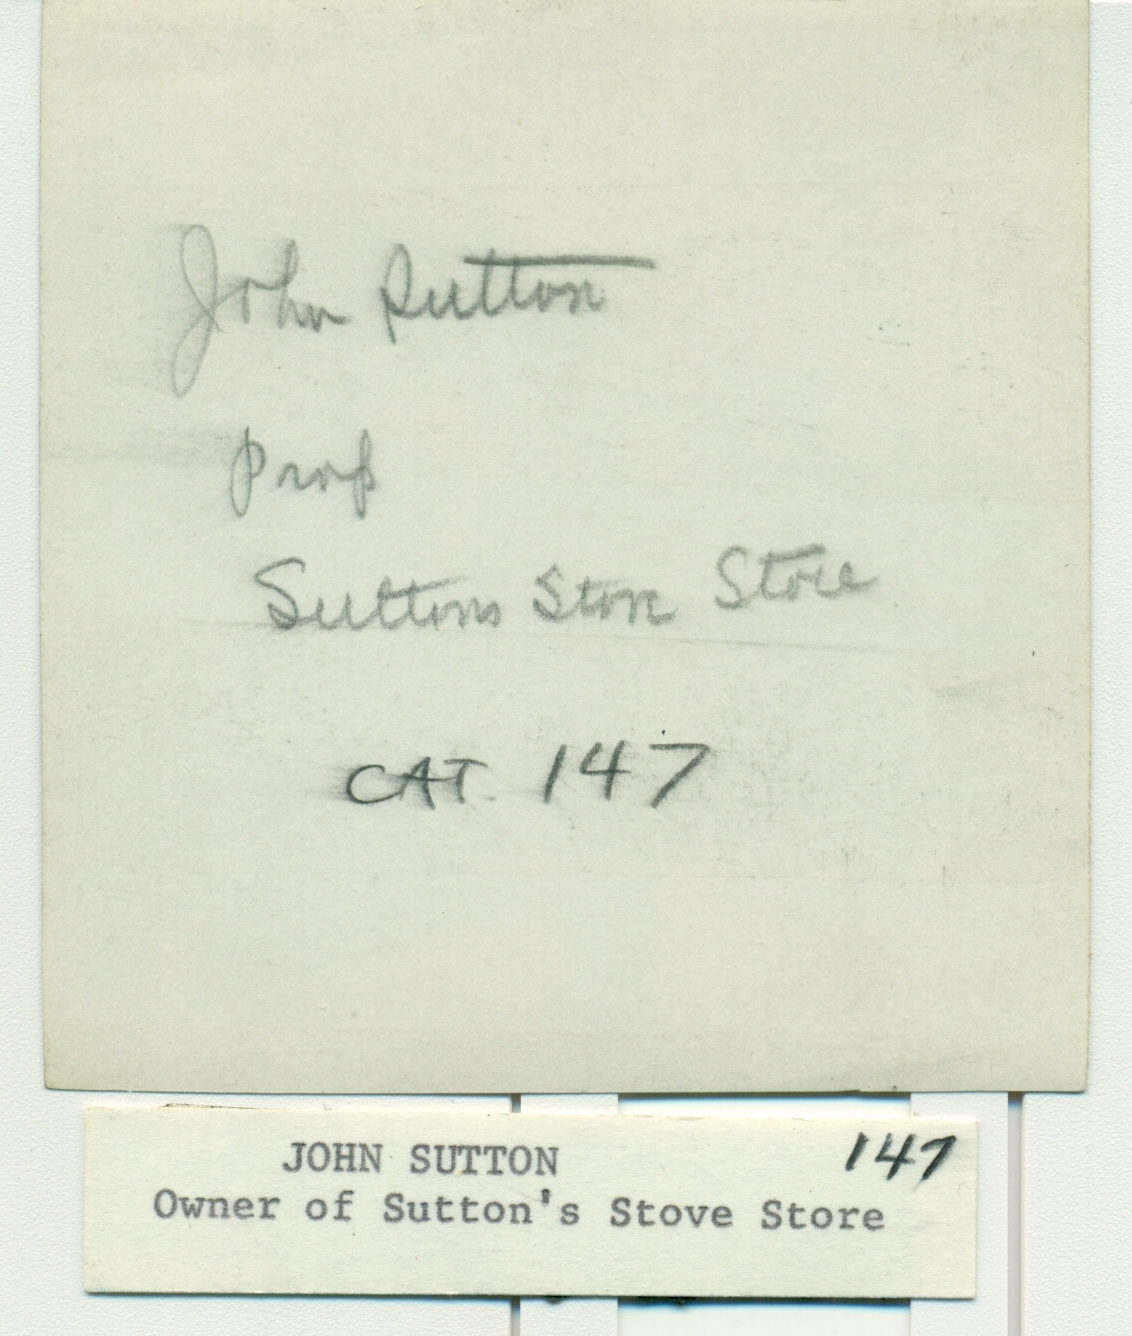 John Sutton
Prop
Suttons Stove Store
CAT. 147
JOHN SUTTON 147
Owner of Sutton's Stove Store